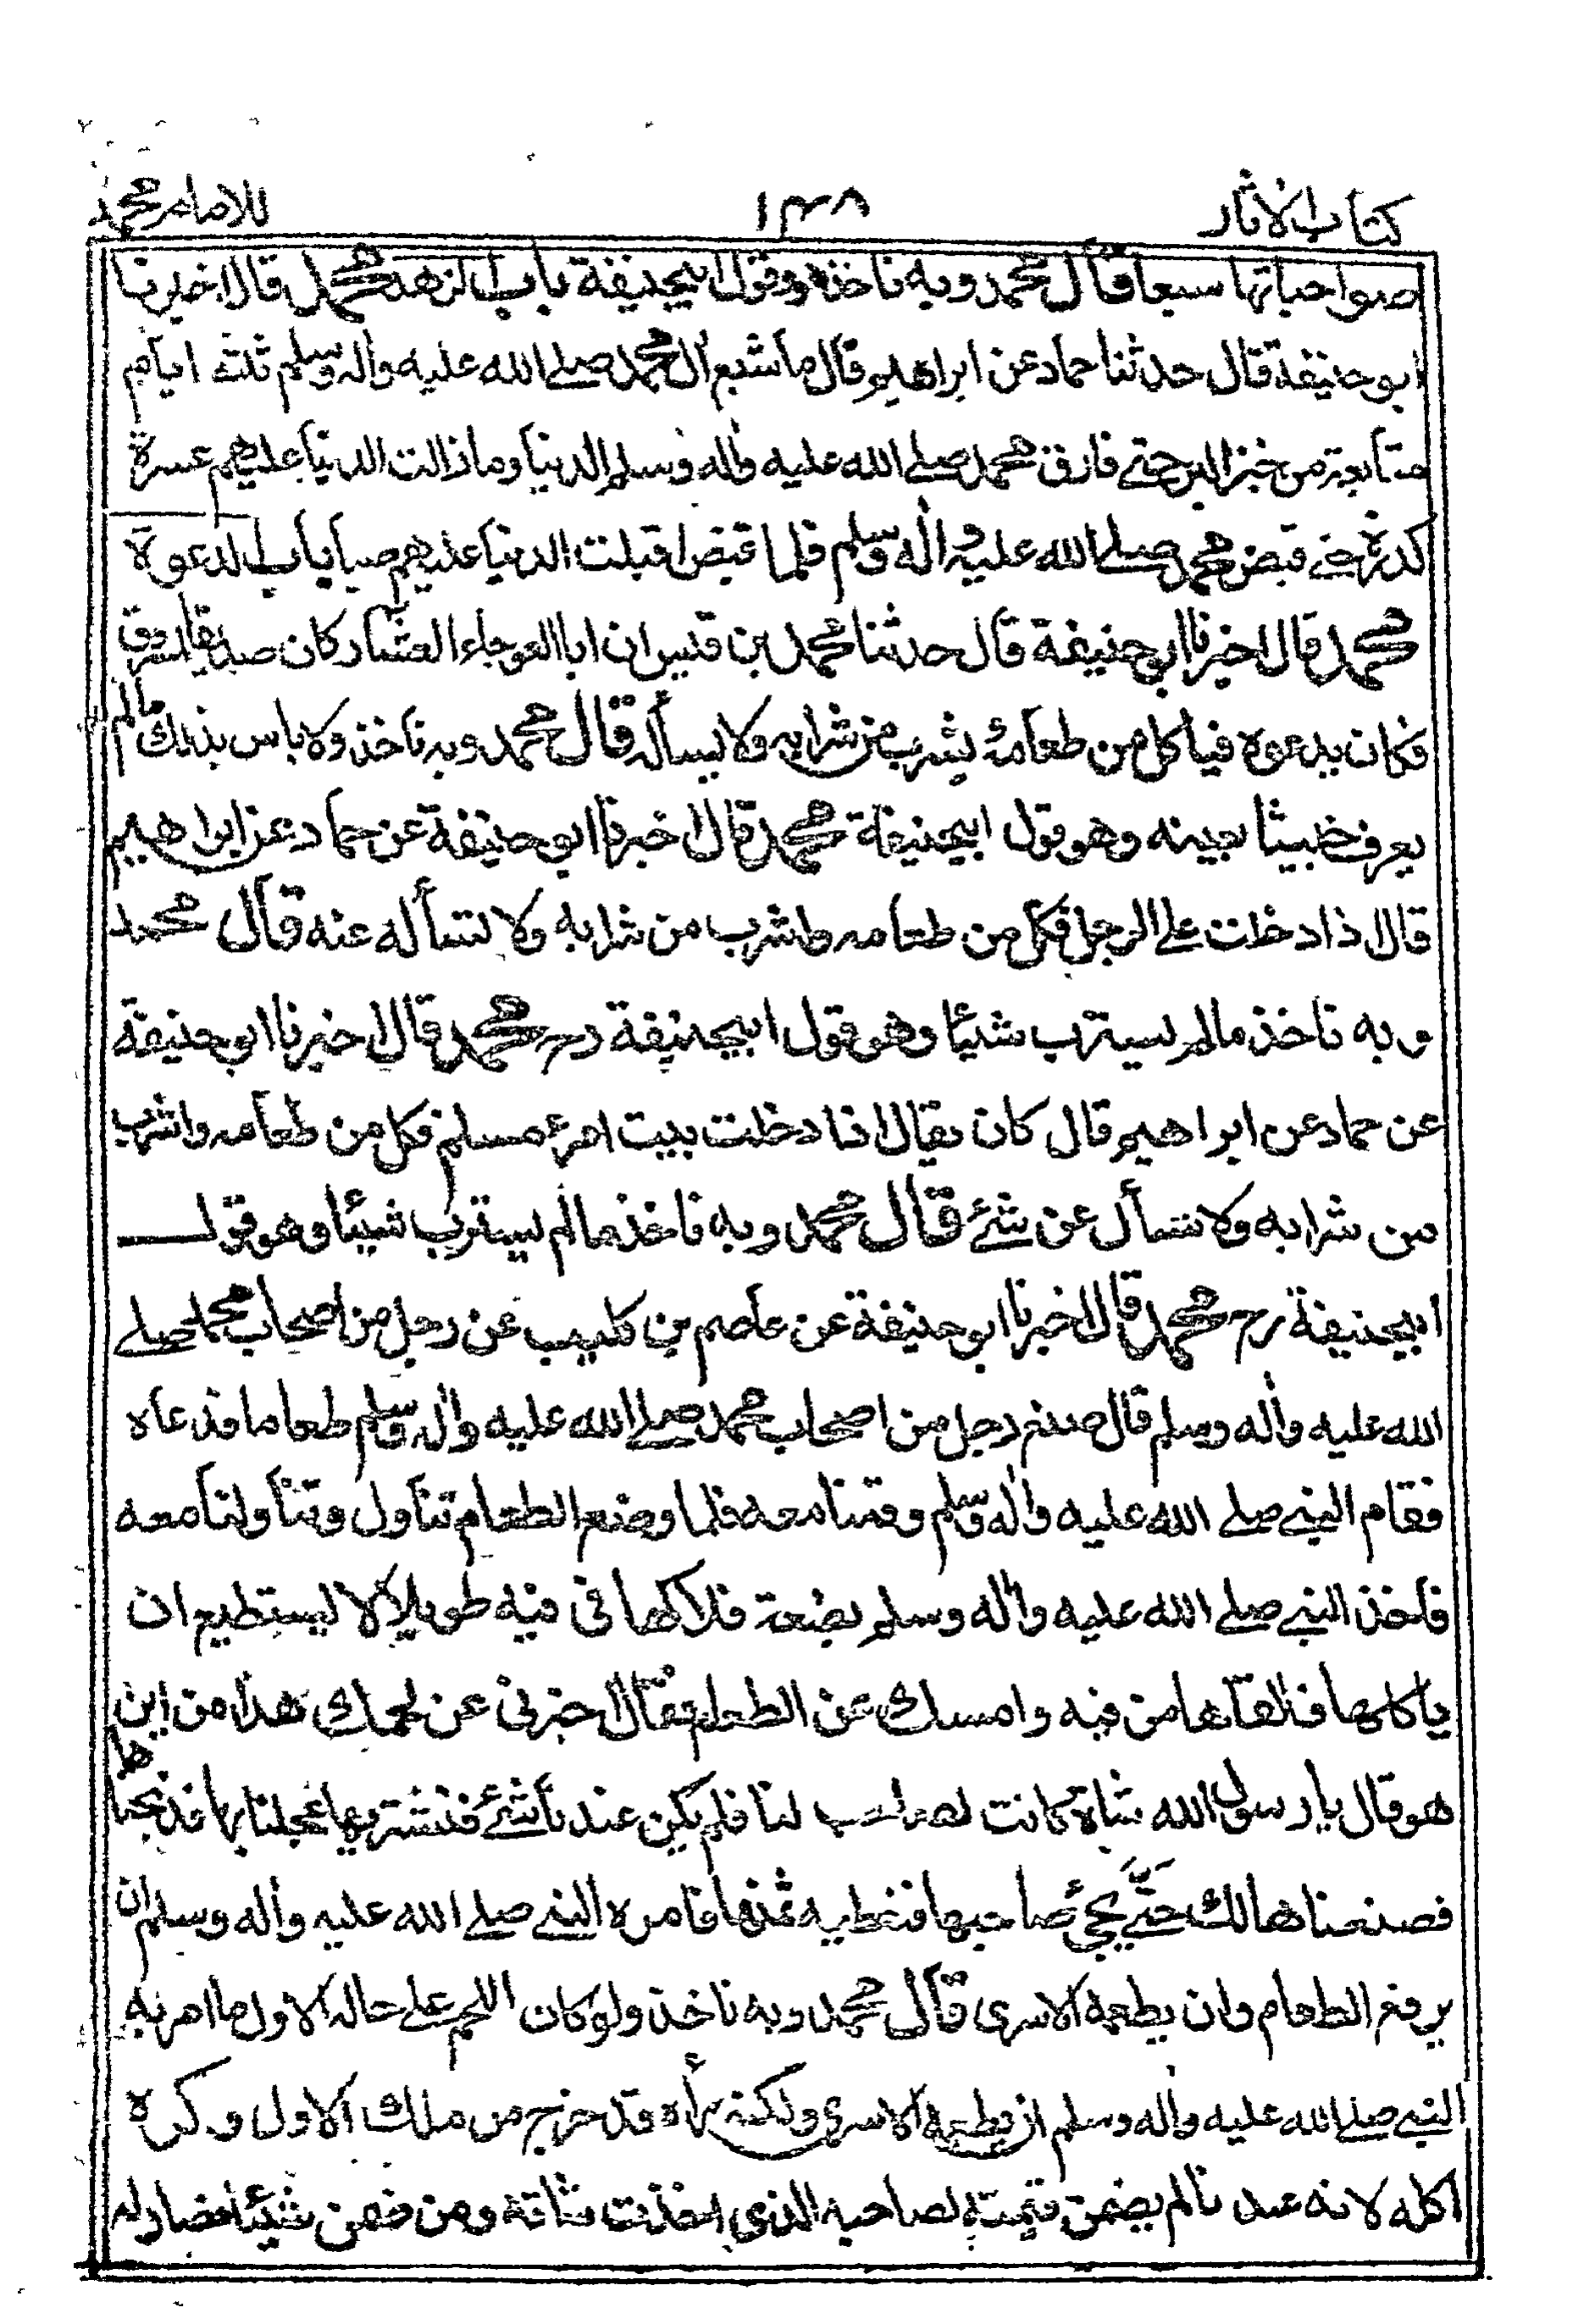 كتاب الاثار ١٣٨ للامام محمد
صواحباتها سبعا قال محمد وبه ناخذ وهو قول ابيحنيفة باب الزهد محمد قال اخبرنا
ابو حنيفة قال حدثنا حماد عن ابراهيم قال ما شبع ال محمد صلے الله عليه واله وسلم ثلثة ايام
متتابعة من خبز البر حتے فارق محمد صلے الله عليه واله وسلم الدنيا وما زالت الدنيا عليهم عسرة
كدرة حتے قبض محمد صلے الله عليه واله وسلم فلما قبض اقبلت الدنيا عليهم صبا باب الدعوة
محمد قال اخبرنا ابو حنيفة قال حدثنا محمد بن قيس ان ابا العوجاء العشار كان صديقا لمسروق
فكان يدعوه فياكل من طعامه ويشرب من شرابه ولا يسأله قال محمد وبه ناخذ ولا باس بذلك مالم
يعرف خبيثا بعينه وهو قول ابيحنيفة محمد قال اخبرنا ابو حنيفة عن حماد عن ابراهيم
قال اذا دخلت على الرجل فكل من طعامه واشرب من شرابه ولا تسأله عنه قال محمد
وبه ناخذ مالم يسترب شيئا وهو قول ابيحنيفة رح محمد قال اخبرنا ابو حنيفة
عن حماد عن ابراهيم قال كان يقال اذا دخلت بيت امرء مسلم فكل من طعامه واشرب
من شرابه ولا تسأل عن شئ قال محمد وبه ناخذ مالم يسترب شيئا وهو قول
ابيحنيفة رح محمد قال اخبرنا ابو حنيفة عن عاصم بن كليب عن رجل من اصحاب محمد صلے
الله عليه واله وسلم قال صنع رجل من اصحاب محمد صلے الله عليه واله وسلم طعاما فدعاه
فقام النبے صلے الله عليه واله وسلم وقمنا معه فلما وضع الطعام تناول وتناولنا معه
فاخذ النبے صلے الله عليه واله وسلم بضعة فلاكها فى فيه طويلا لا يستطيع ان
ياكلها فالقاها من فيه وامسك عن الطعام فقال اخبرنى عن لحمك هذا من اين
هو قال يا رسول الله شاة كانت لصاحب لنا فلم يكن عندنا شئ فنشتريها عجلنا بها فذبحناها
فصنعناها لك حتے يجئ صاحبها فنعطيه ثمنها فامره النبے صلے الله عليه واله وسلم ان
يرفع الطعام وان يطعمه الاسرى قال محمد وبه ناخذ ولو كان اللحم على حاله الاول ما امر به
النبے صلے الله عليه واله وسلم ان يطعمه الاسرى ولكنه رأه قد خرج من ملك الاول وكره
اكله لانه عندنا لم يضمن قيمته لصاحبه الذى اخذت شاته ومن ضمن شيئا فصار له